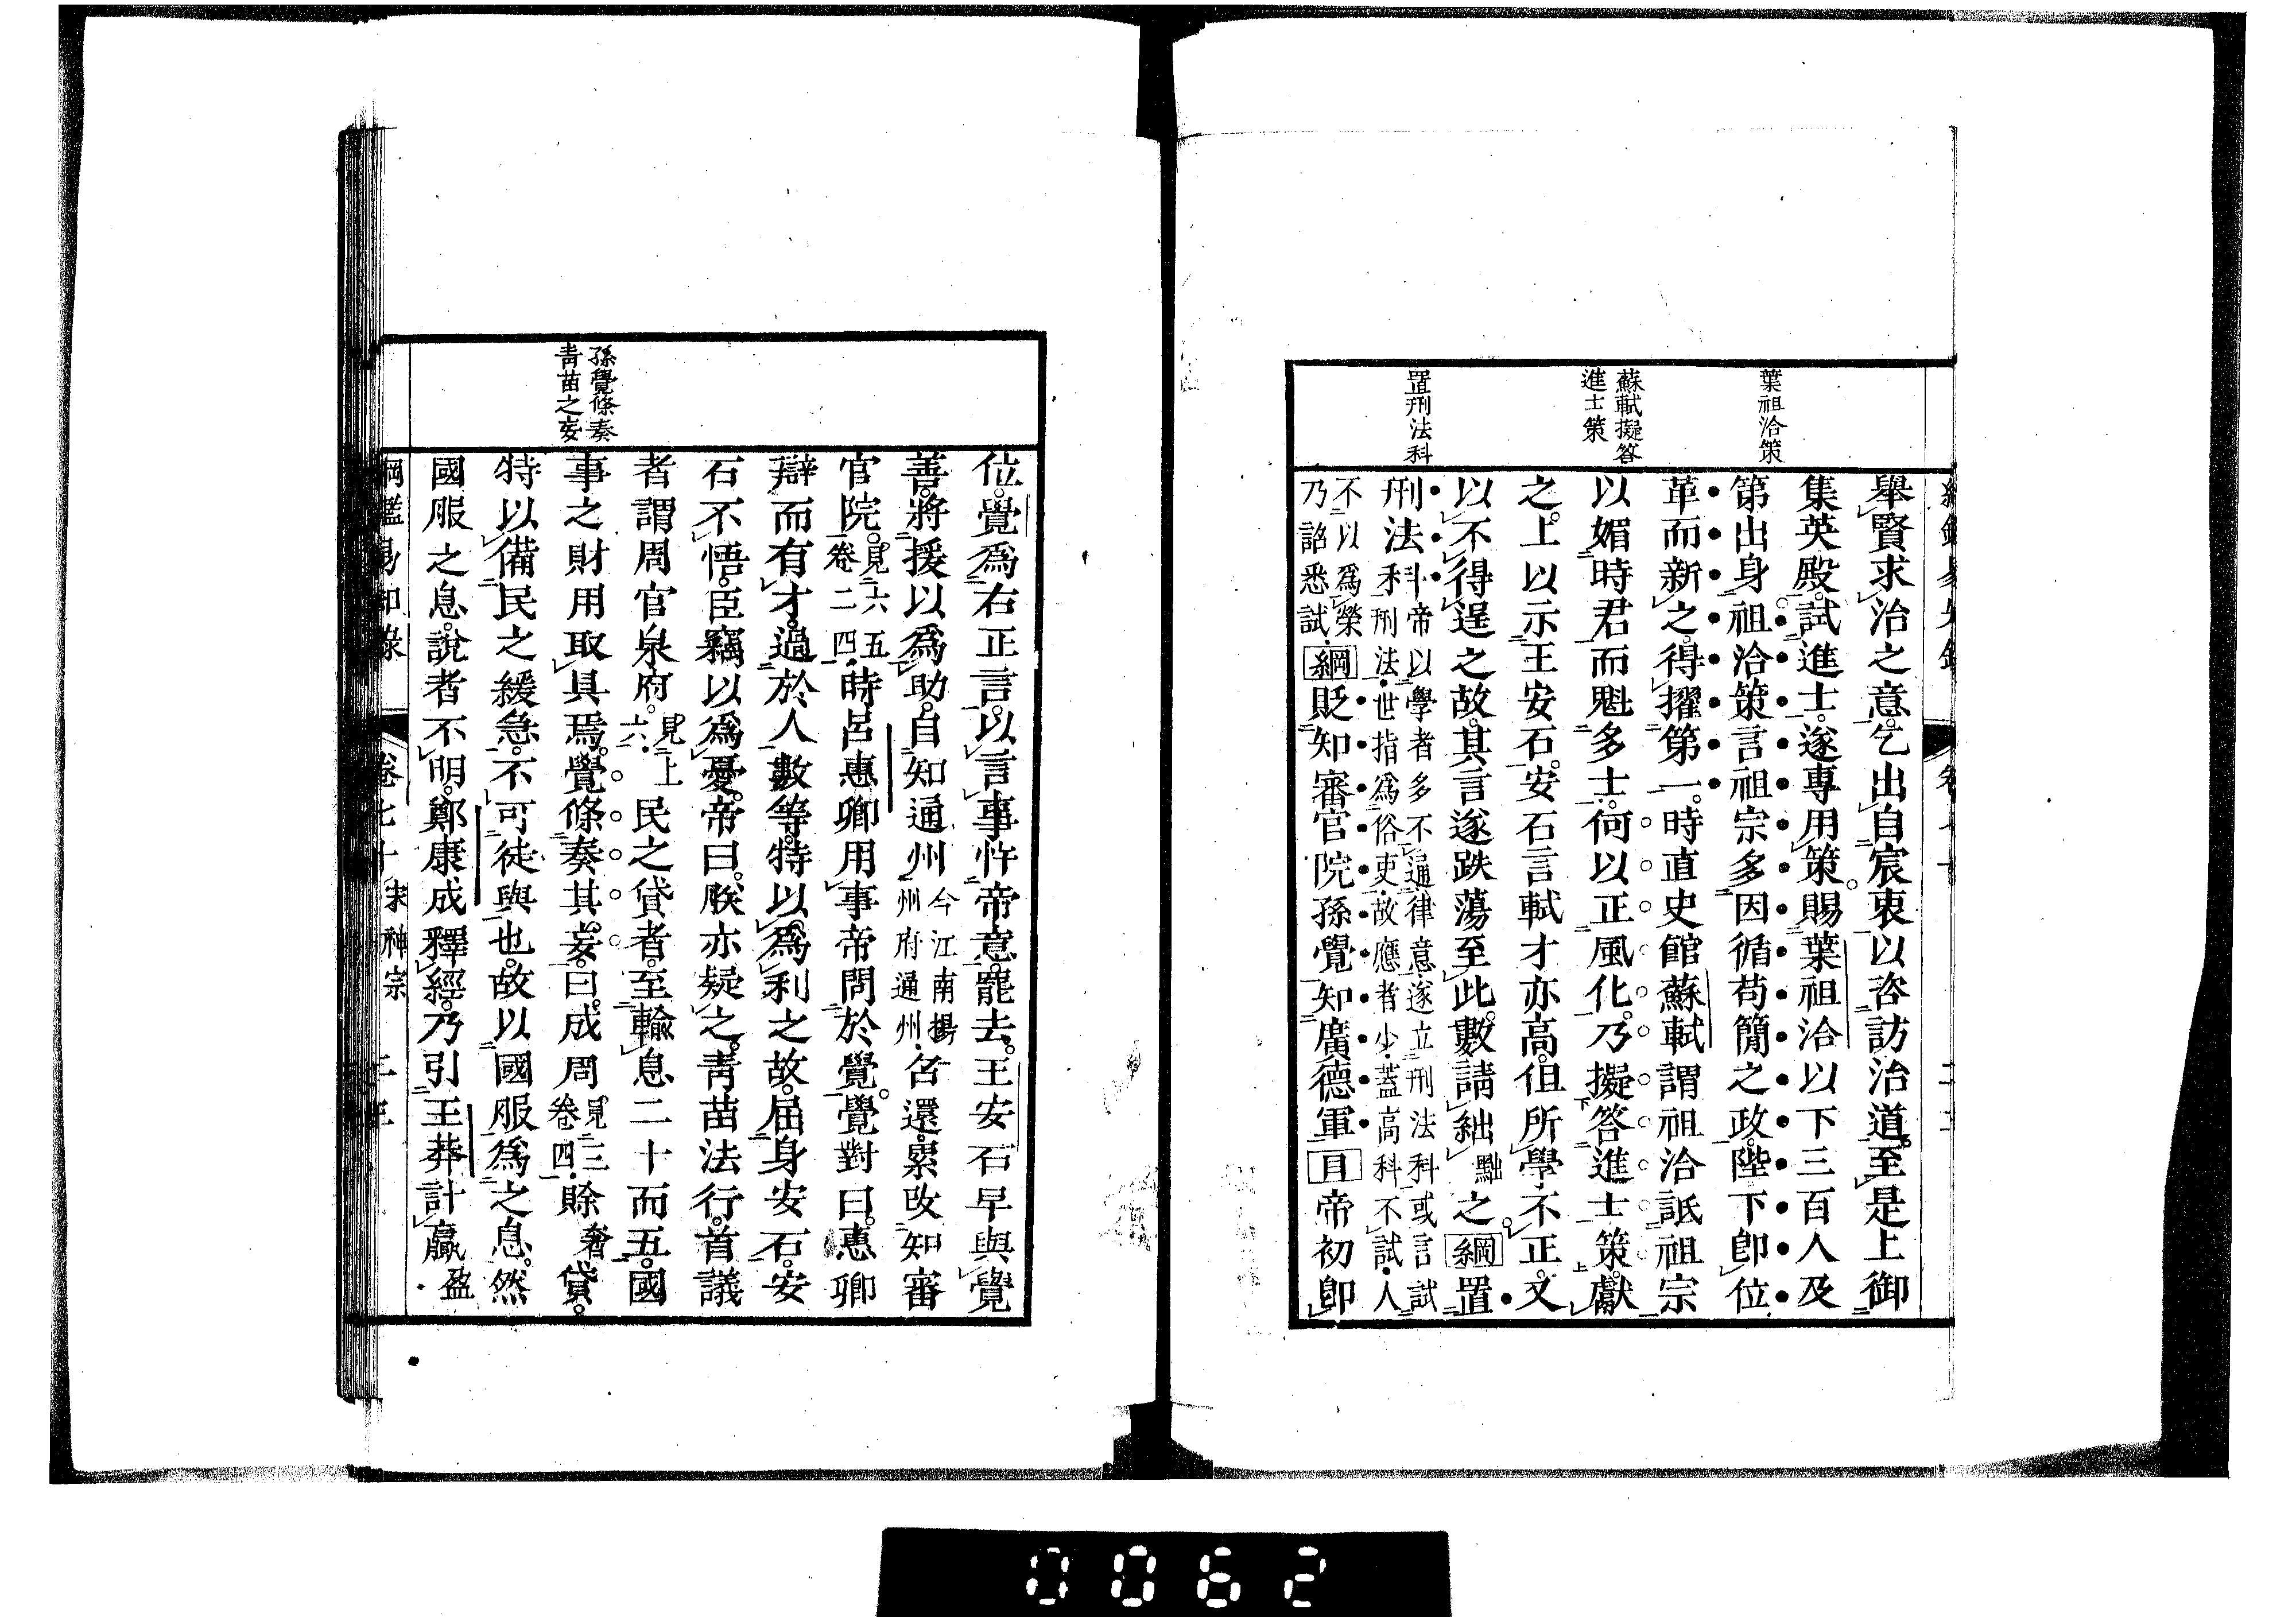 葉祖洽策
蘇軾擬答
進士策
置刑法科
舉賢求治之意乞出自宸衷以咨訪治道至是上御
集英殿試進士遂專用策賜葉祖洽以下三百人及
第出身祖洽策言祖宗多因循苟簡之政陛下卽位
革而新之得擢第一時直史館蘇軾謂祖洽詆祖宗
以媚時君而魁多士何以正風化乃擬答進士策獻
之上以示王安石安石言軾才亦高但所學不正文
以不得逞之故其言遂跌蕩至此數請絀黜之綱置
刑法科帝以學者多不通律意遂立刑法科或言試
刑法世指為俗吏故應者少蓋高科不試人
不以為榮
乃詔悉試綱貶知審官院孫覺知廣德軍目帝初卽
孫覺條奏
青苗之妄
位覺爲右正言以言事忤帝意罷去王安石早與覺
善將援以爲助自知通州今江南揚州府通州召還累改知審
官院見六五卷二四時呂惠卿用事帝問於覺覺對曰惠卿
辯而有才過於人數等特以爲利之故屈身安石安
石不悟臣竊以爲憂帝曰朕亦疑之靑苗法行首議
者謂周官泉府見上六民之貸者至輸息二十而五國
事之財用取具焉覺條奏其妄曰成周見三卷四賒奢貸
特以備民之緩急不可徒與也故以國服爲之息然
國服之息說者不明鄭康成釋經乃引王莽計贏盈
綱鑑易知錄 卷七十 宋神宗
0062